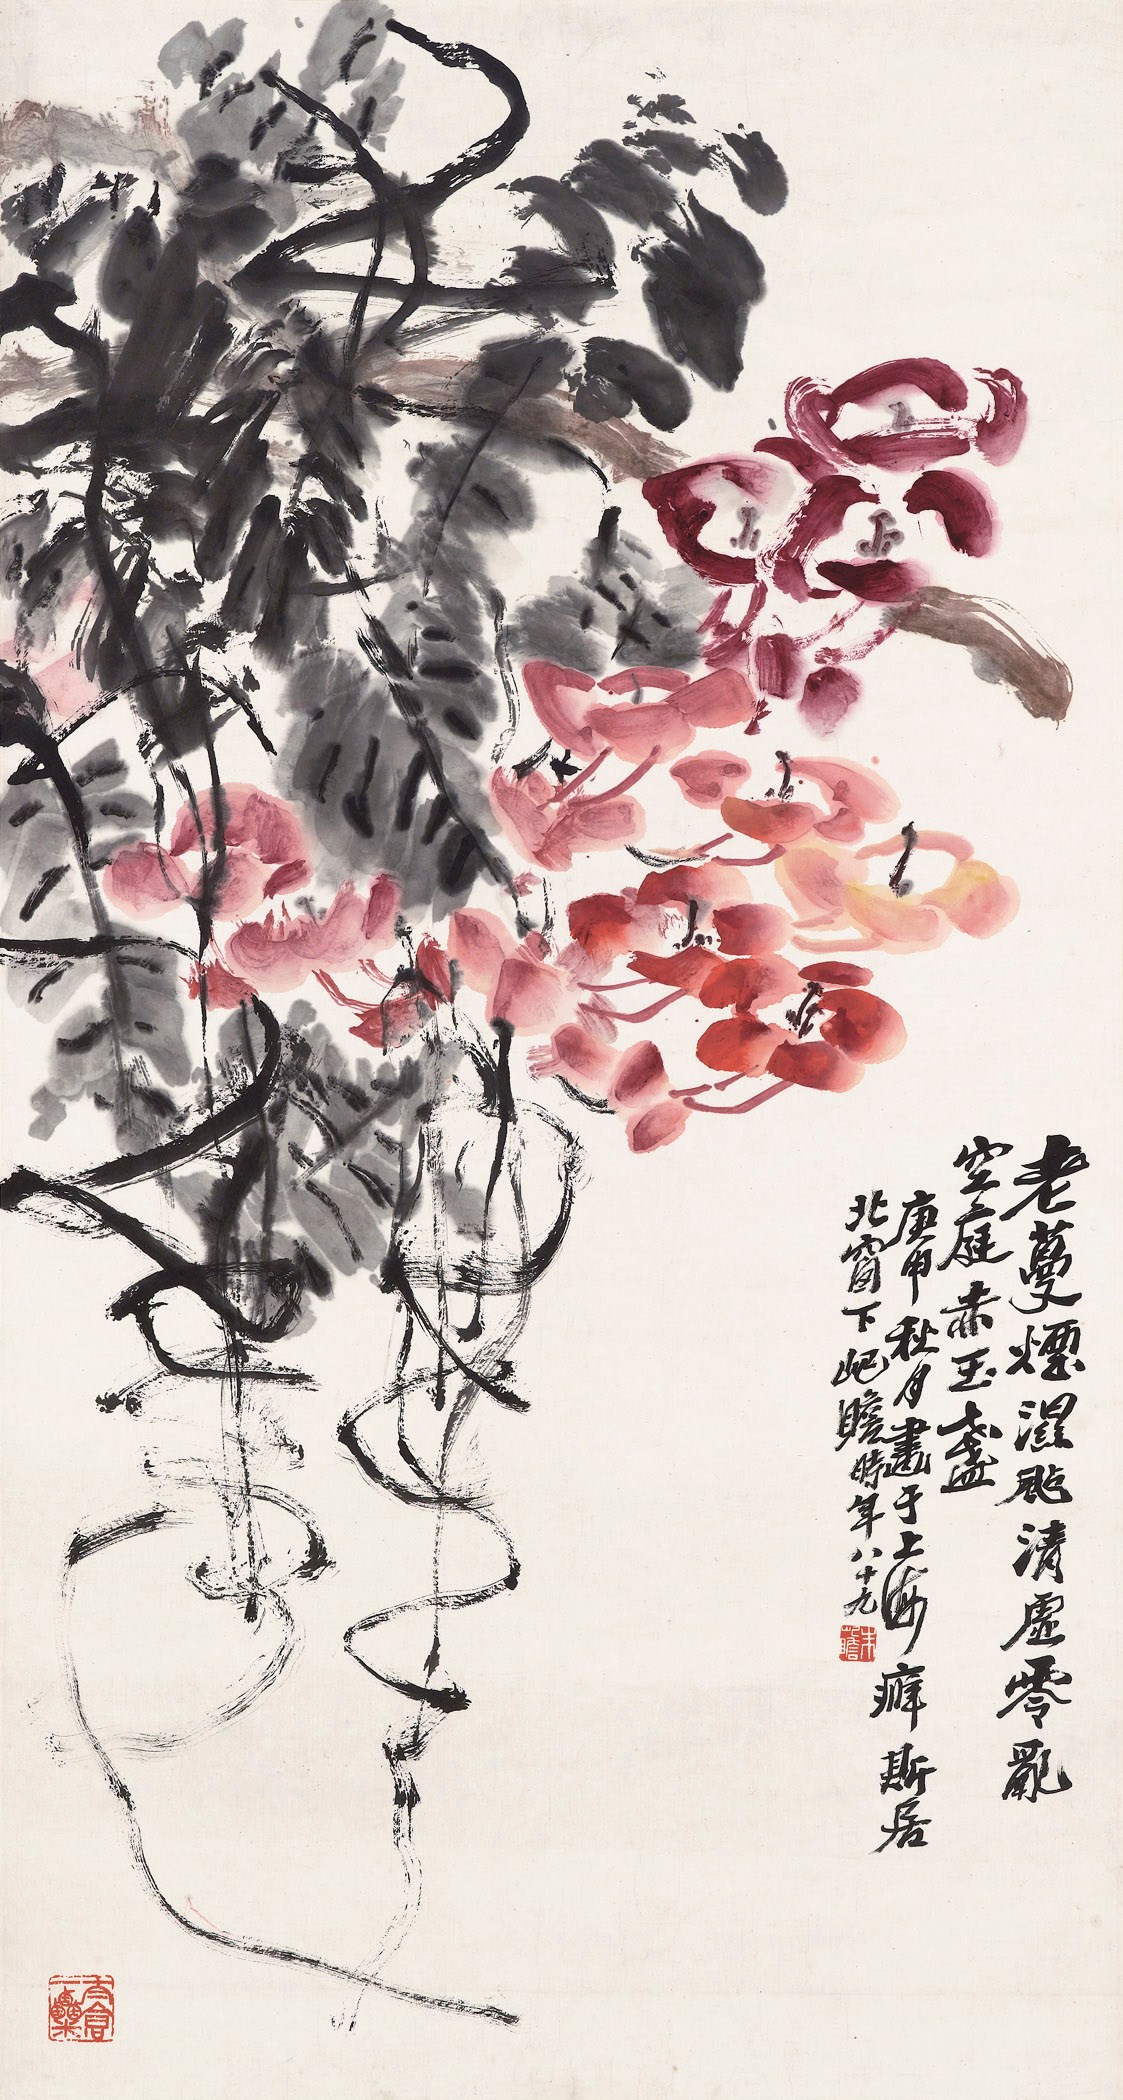 老蔓煙濕清虛零亂
空庭赤玉盞
庚申秋月畫于上海癖斯居
北窗下屺瞻時年八十九
朱屺瞻
太倉一粟